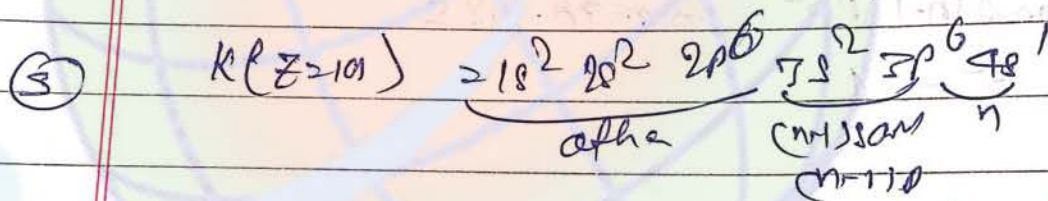 (5) K(Z=19) = 1s² 2s² 2p⁶ 3s² 3p⁶ 4s¹
other (n-1)s and n
(n-1)p